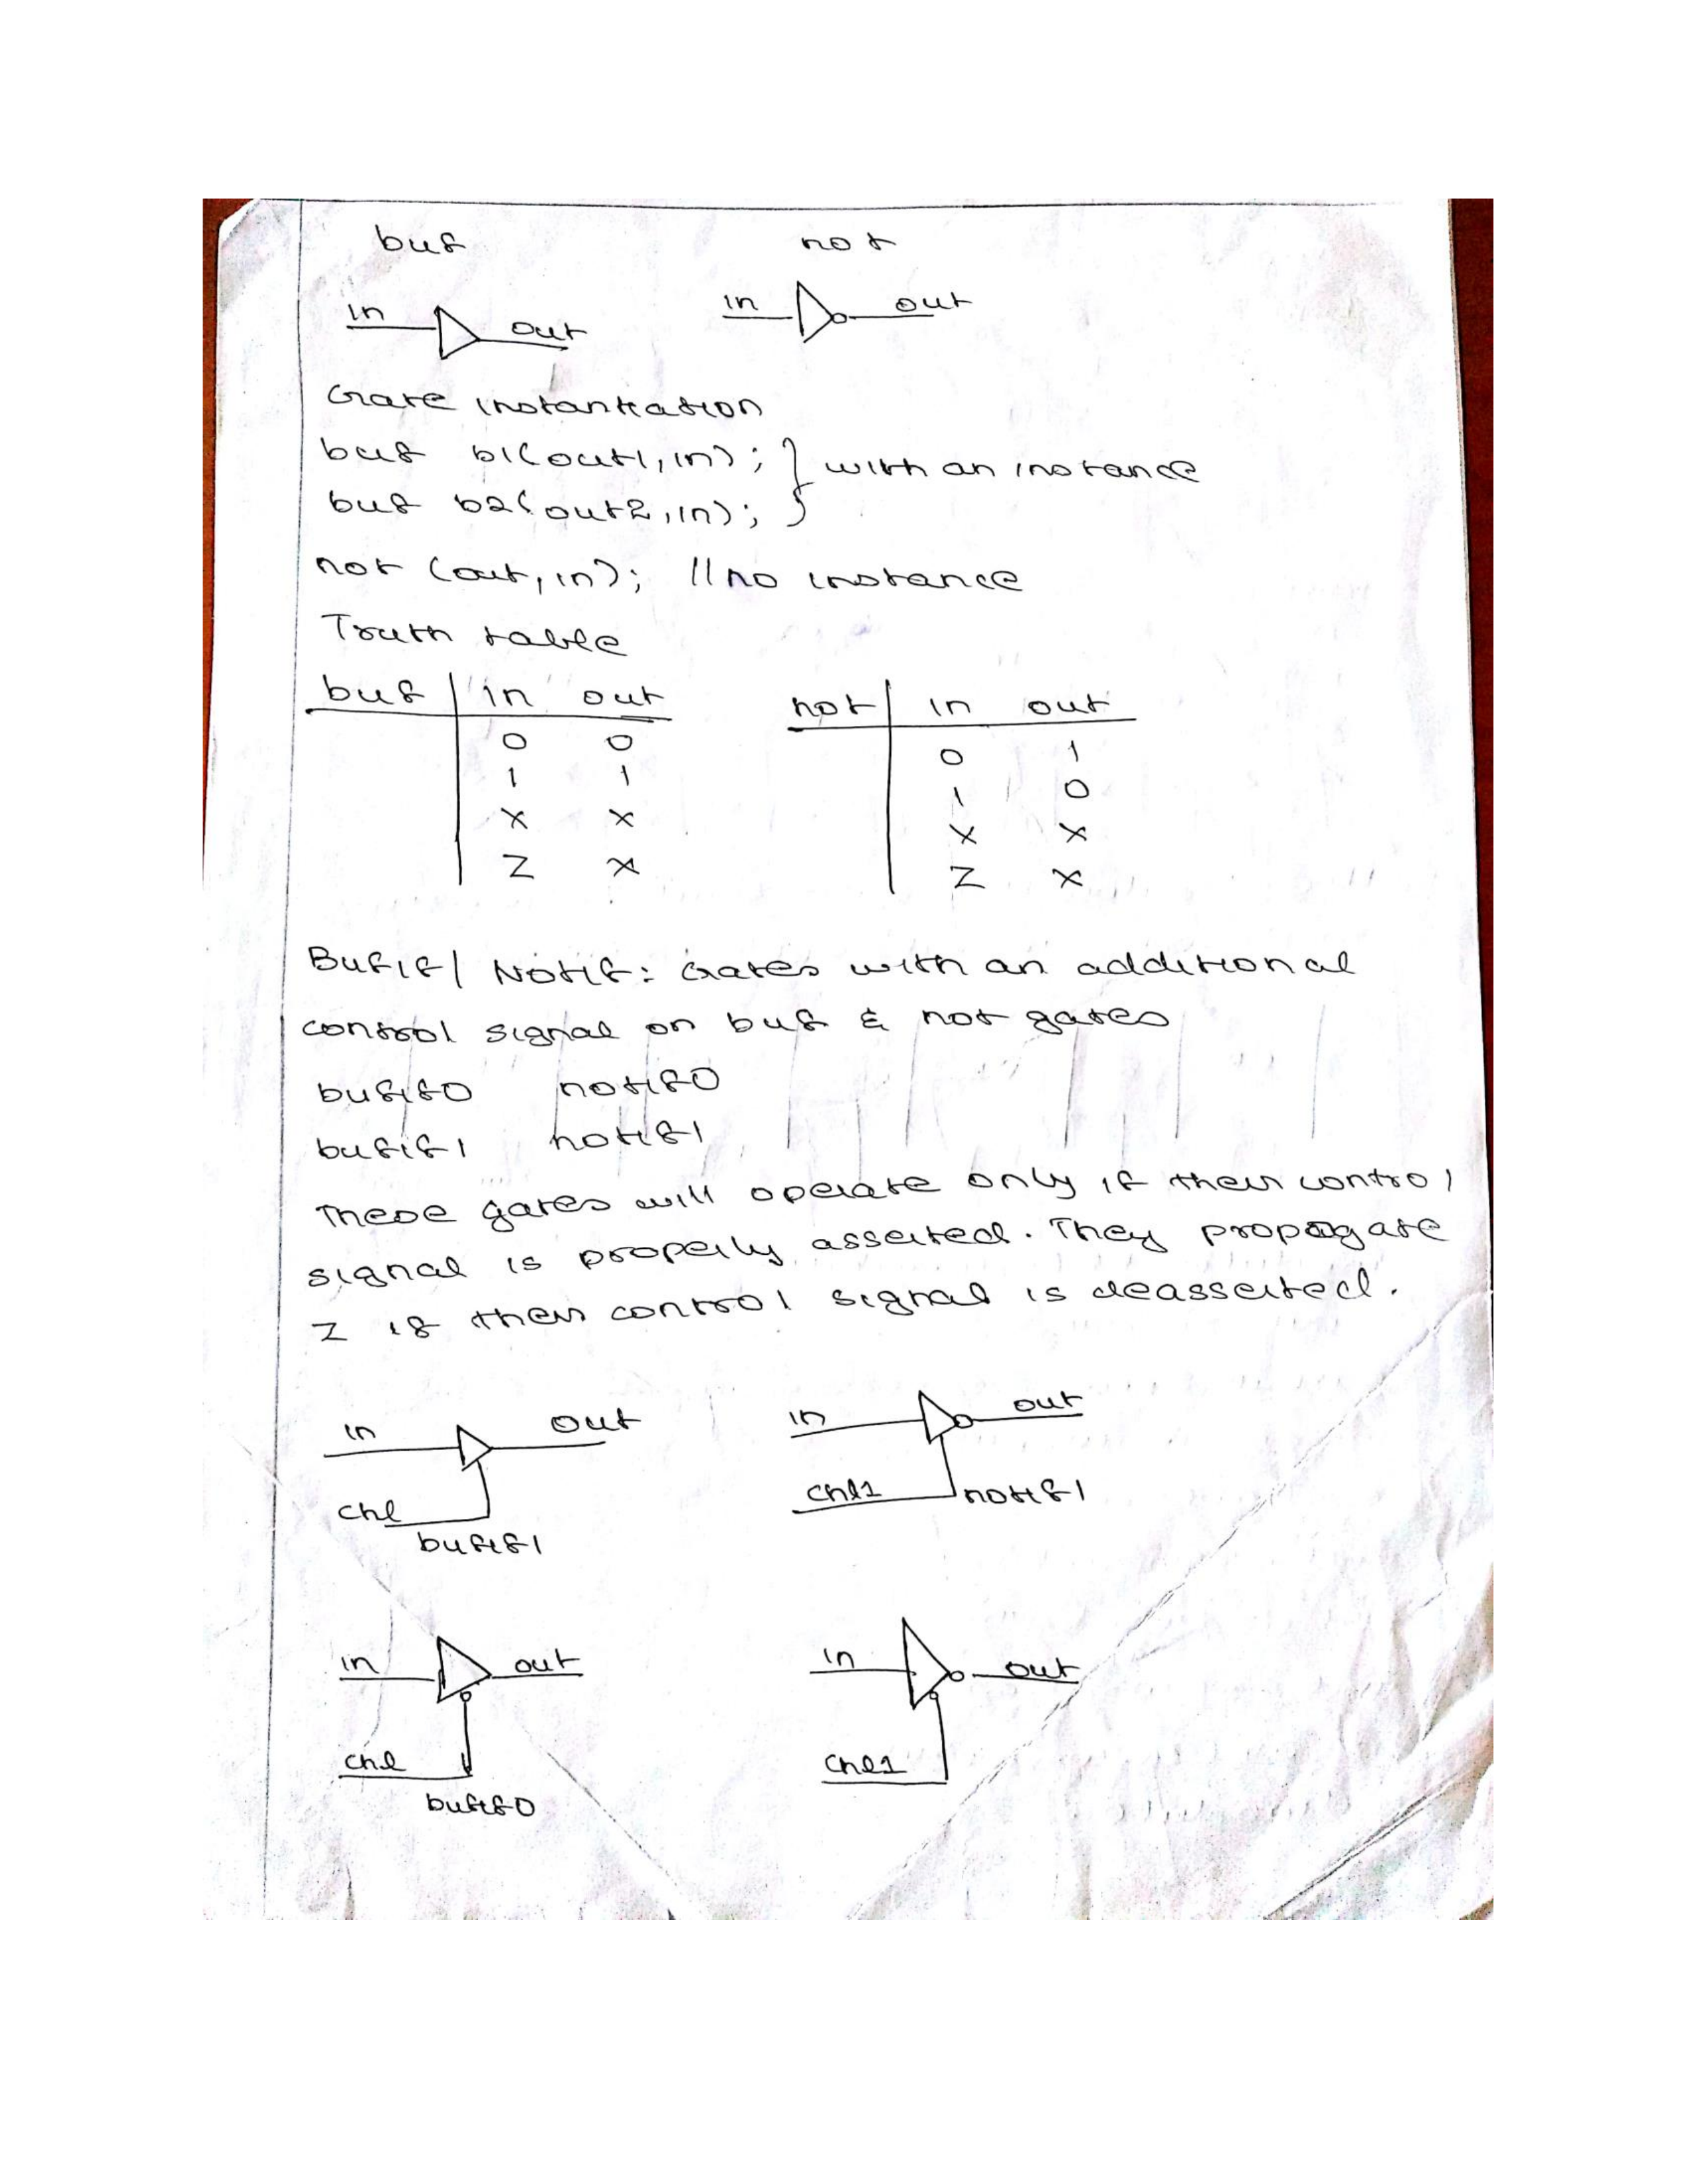 buf not
in out in out
Gate instantiation
buf b1(out1, in); } with an instance
buf b2(out2, in);
not (out, in); // no instance
Truth table
buf in out not in out
0 0 0 1
1 1 1 0
X X X X
Z X Z X
Bufif/ Notif: Gates with an additional
control signal on buf & not gates
bufif0 notif0
bufif1 notif1
These gates will operate only if their control
signal is properly asserted. They propagate
Z if their control signal is deasserted.
in out in out
ctrl ctrl1 notif1
bufif1
in out in out
ctrl ctrl1
bufif0